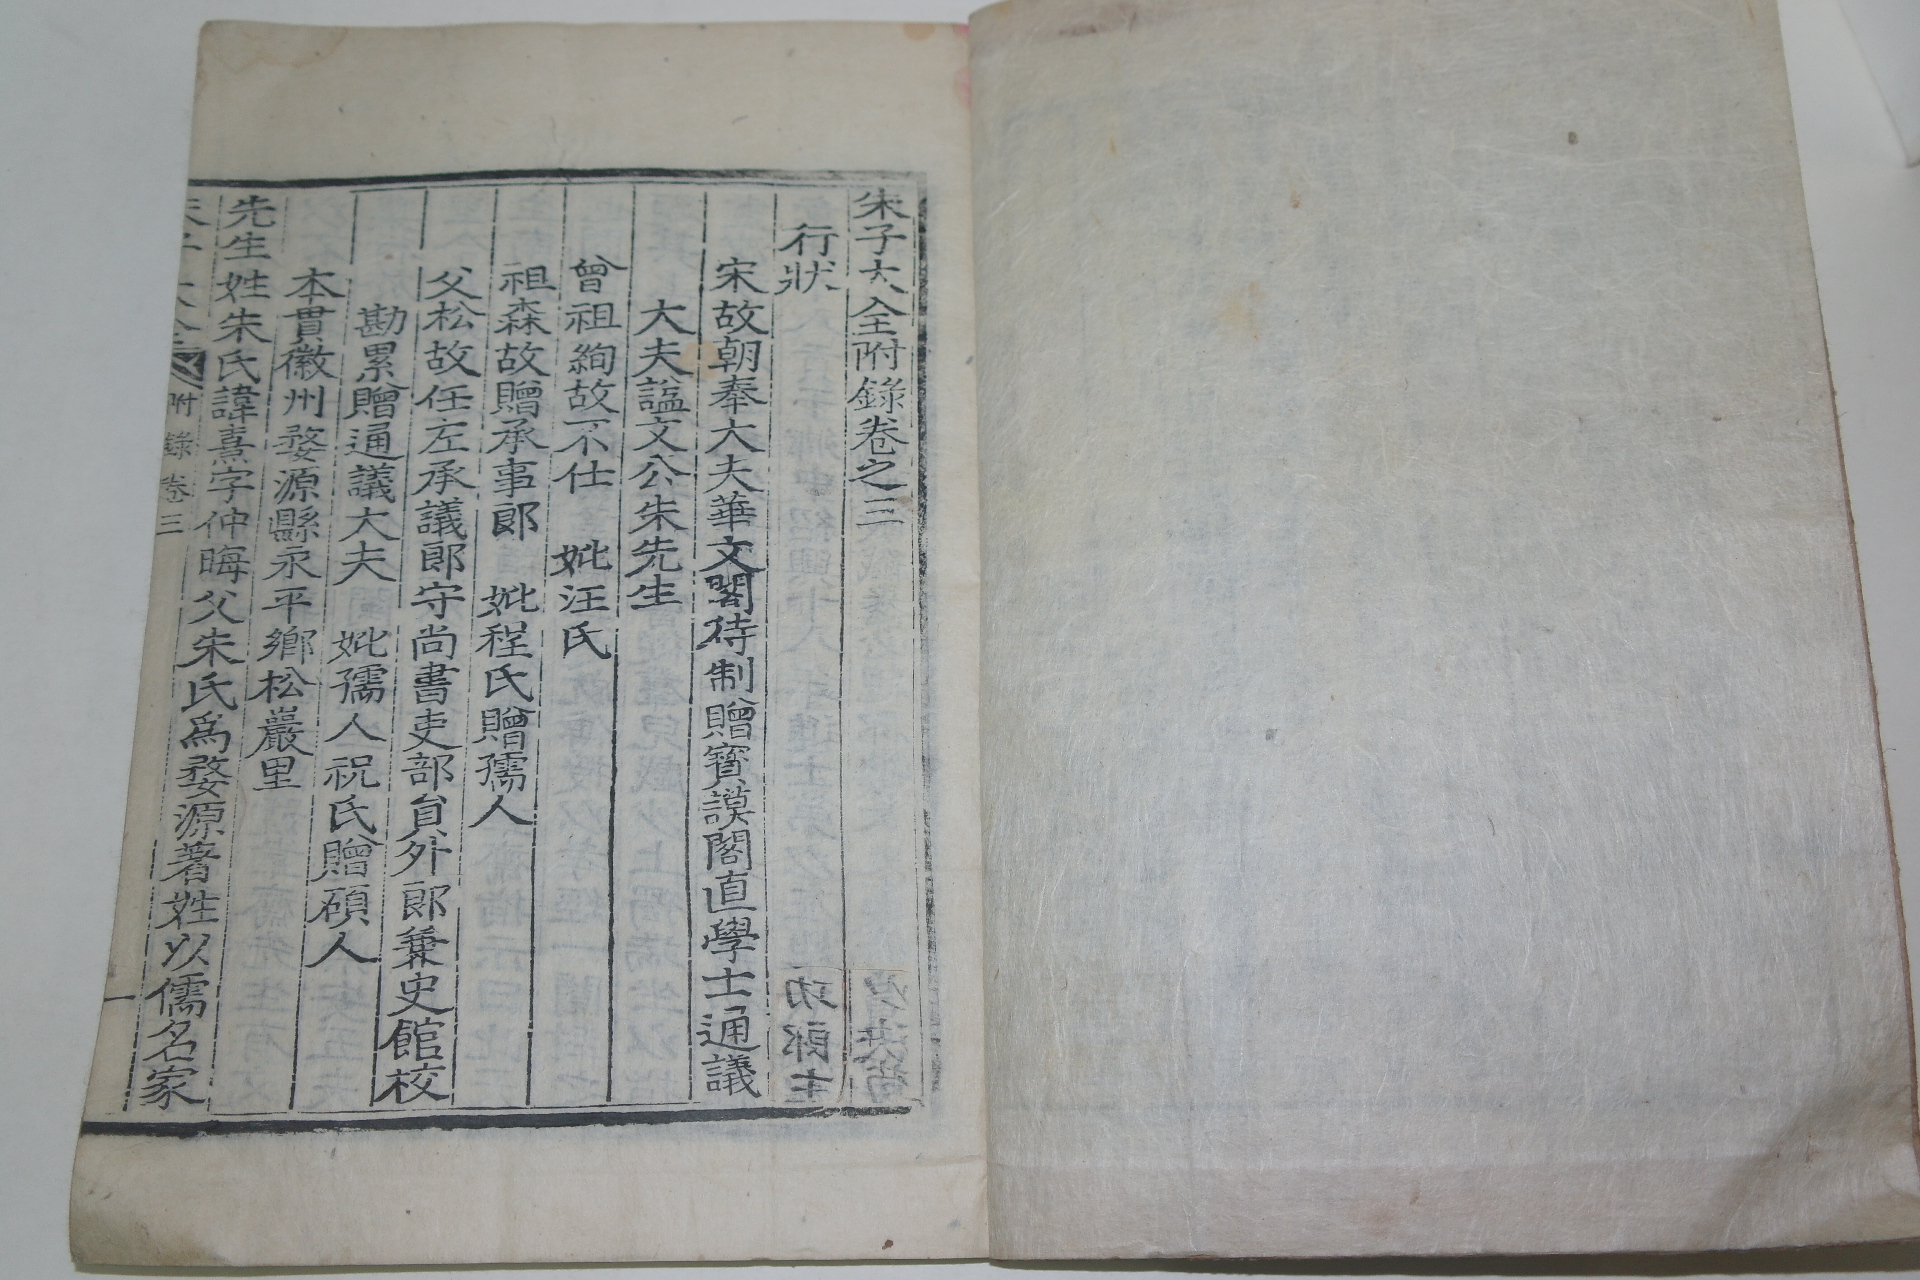 朱子大全附錄卷之三
行狀
宋故朝奉大夫華文閣待制贈寶謨閣直學士通議
大夫諡文公朱先生
曾祖絢故不仕 妣汪氏
祖森故贈承事郎 妣程氏贈孺人
父松故任左承議郎守尚書吏部貟外郎兼史館校
勘累贈通議大夫 妣孺人祝氏贈碩人
本貫徽州婺源縣永平鄉松巖里
先生姓朱氏諱熹字仲晦父朱氏爲婺源著姓以儒名家
朱子大全 附錄卷三 一